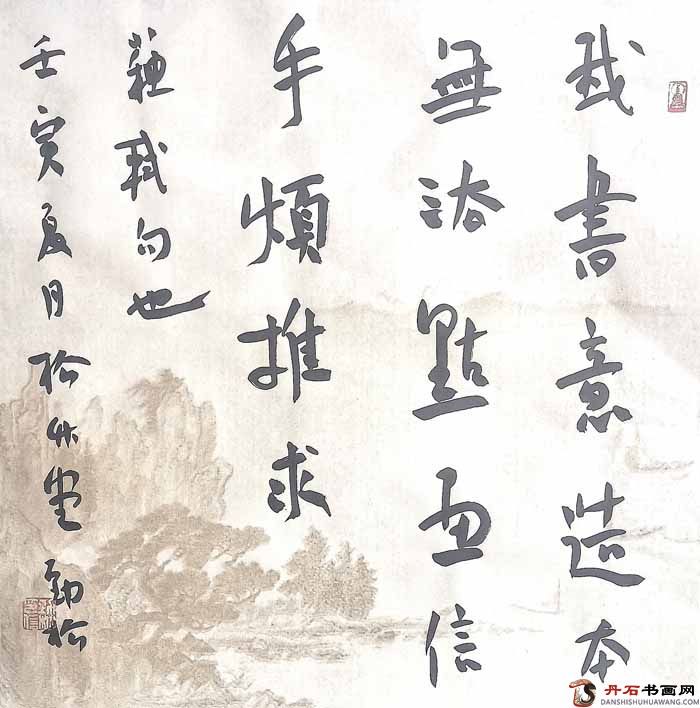 我書意造本
無法點画信
手煩推求
蘇軾句也
壬寅夏月松竹堂 勁松
丹石书画网
DANSHISHUHUAWANG.COM